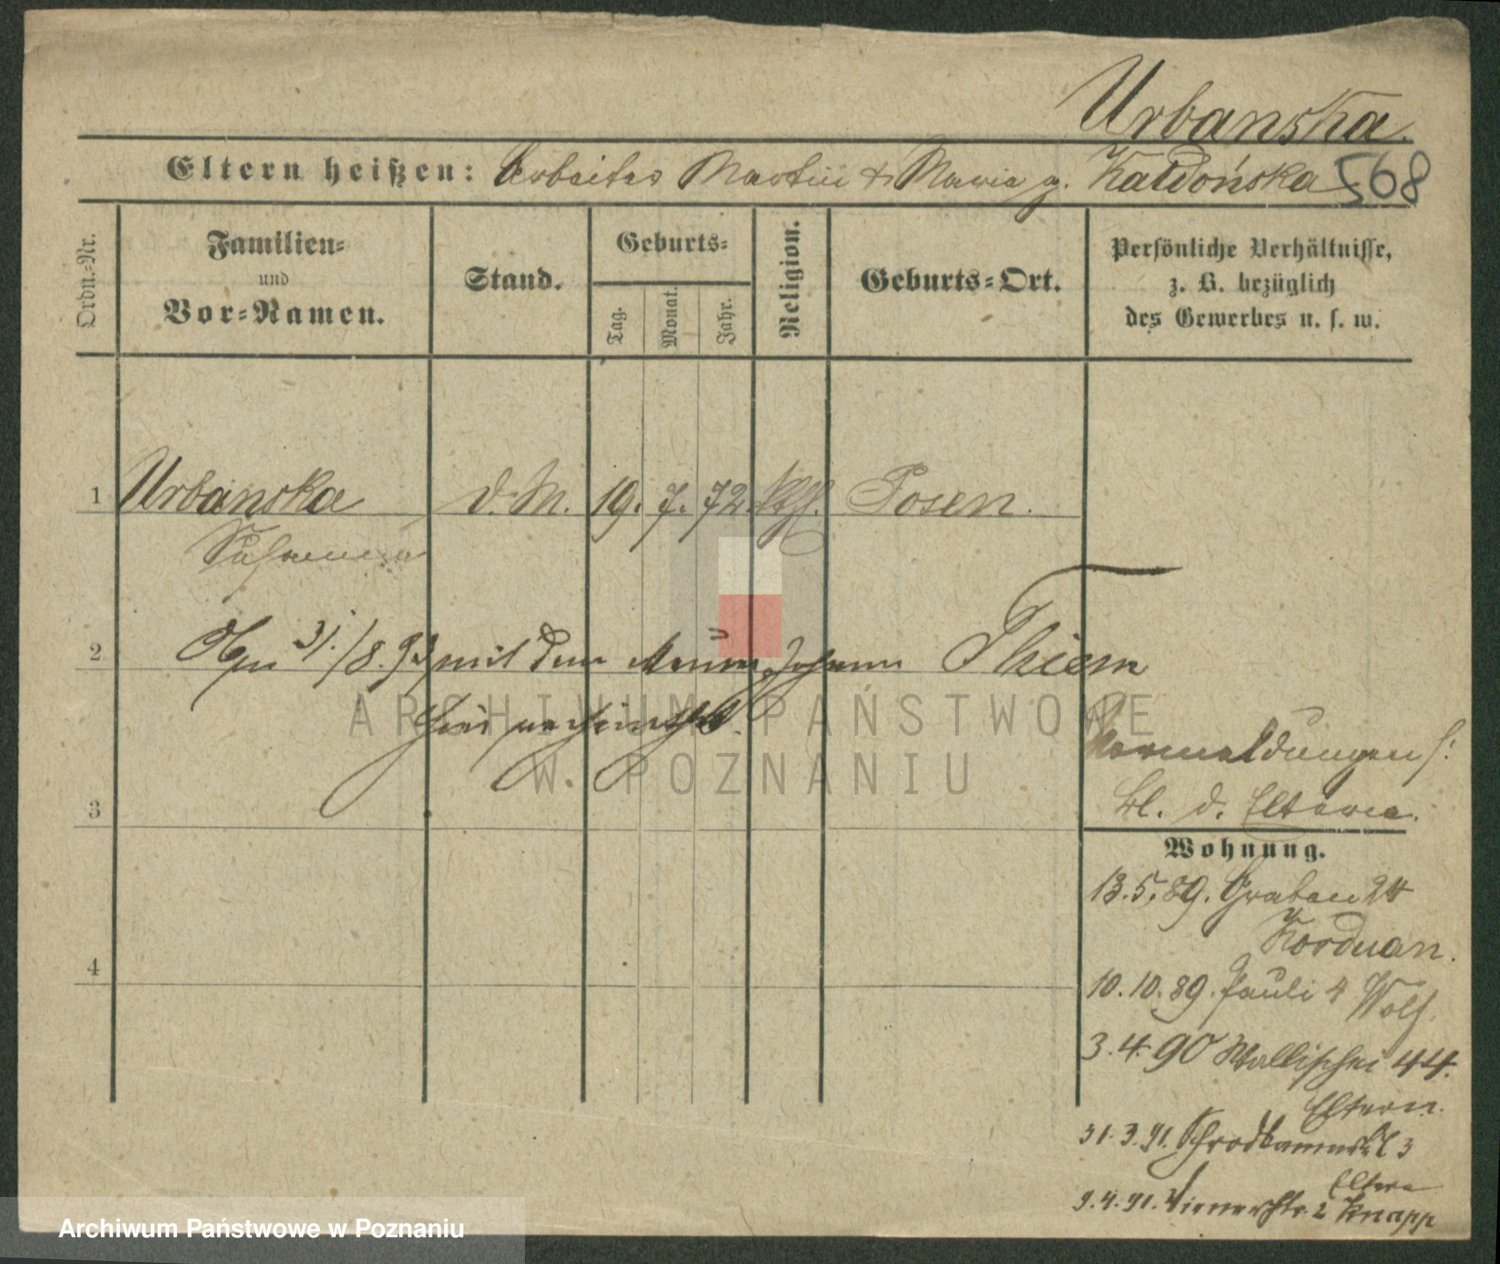 Urbanska.
Eltern heißen: Arbeiter Martin & Maria g. Kaldońska 568
Ordn.=Nr.
Familien= und Vor=Namen.
Stand.
Geburts=
Tag.
Monat.
Jahr.
Religion.
Geburts=Ort.
Persönliche Verhältnisse,
z. B. bezüglich
des Gewerbes u. s. w.
1 Urbanska d. M. 19. 7. 72. kth. Posen.
Susanna
2 31./8. 93 mit dem Johann Thiem
hier
3
4
Vormeldungen s.
bl. d. Eltern.
Wohnung.
13.5.89. Graben 24
Korduan.
10.10.89. Pauli 4 Wolf.
3.4.90 Wallischei 44.
Eltern.
31.3.91. 3
Eltern
9.4.91. Wienerstr. 2 Knapp
ARCHIWUM PAŃSTWOWE
W POZNANIU
Archiwum Państwowe w Poznaniu